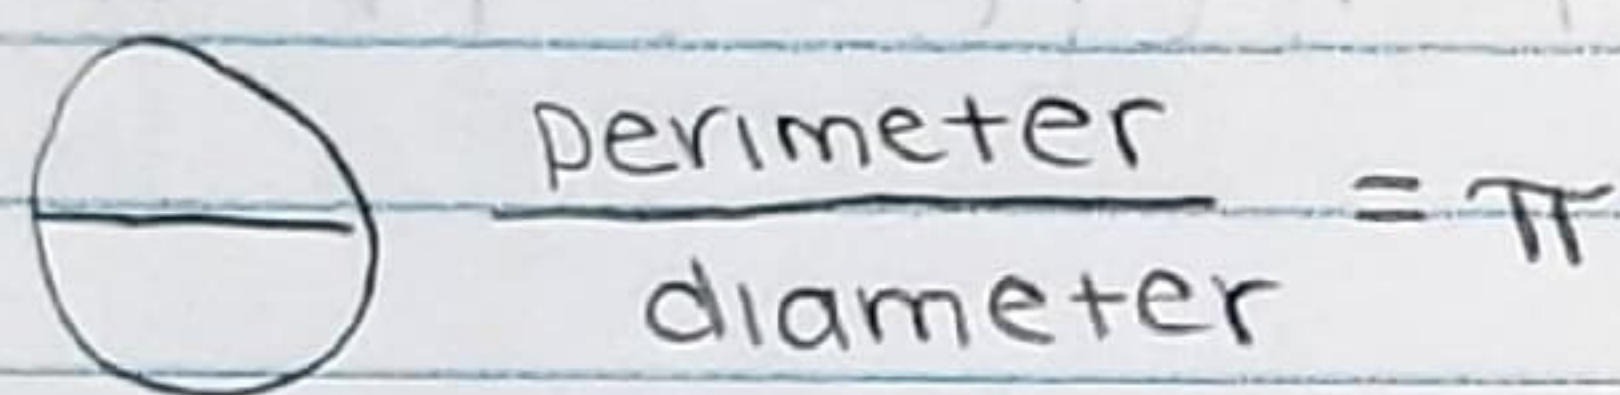 perimeter
diameter
= π